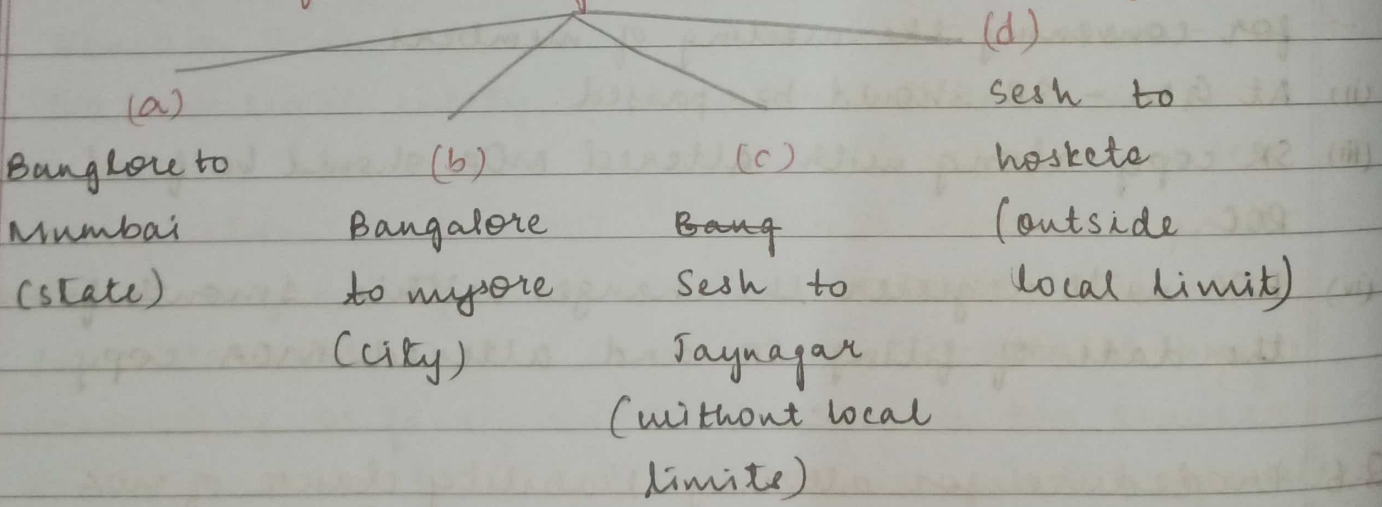 (a)
Banglore to
Mumbai
(state)
(b)
Bangalore
to mysore
(city)
(c)
Bang
Sesh to
Jaynagar
(without local
limits)
(d)
Sesh to
hoskete
(outside
local limit)